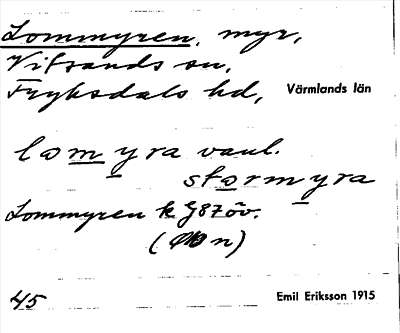 Lommyren, myr,
Vitsands sn,
Fryksdals hd, Värmlands län
lomyra vanl.
stormyra
Lommyren k G87 öv.
( n)
45 Emil Eriksson 1915